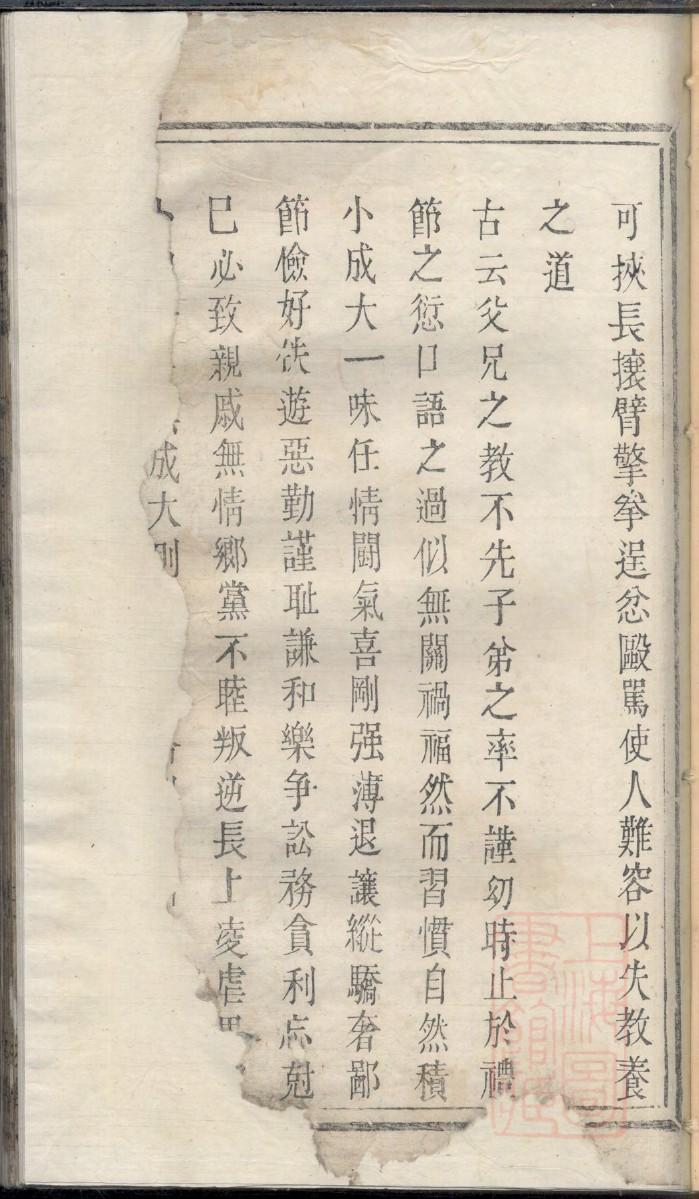 可挾長攘臂擎拳逞忿毆駡使人難容以失教養
之道
古云父兄之教不先子弟之率不謹幼時止於禮
節之愆口語之過似無關禍福然而習慣自然積
小成大一味任情鬪氣喜剛强薄退讓縱驕奢鄙
節儉好佚遊惡勤謹耻謙和樂争訟務貪利忘尅
巳必致親戚無情鄉黨不睦叛逆長上凌虐
成大則
上海圖書館藏